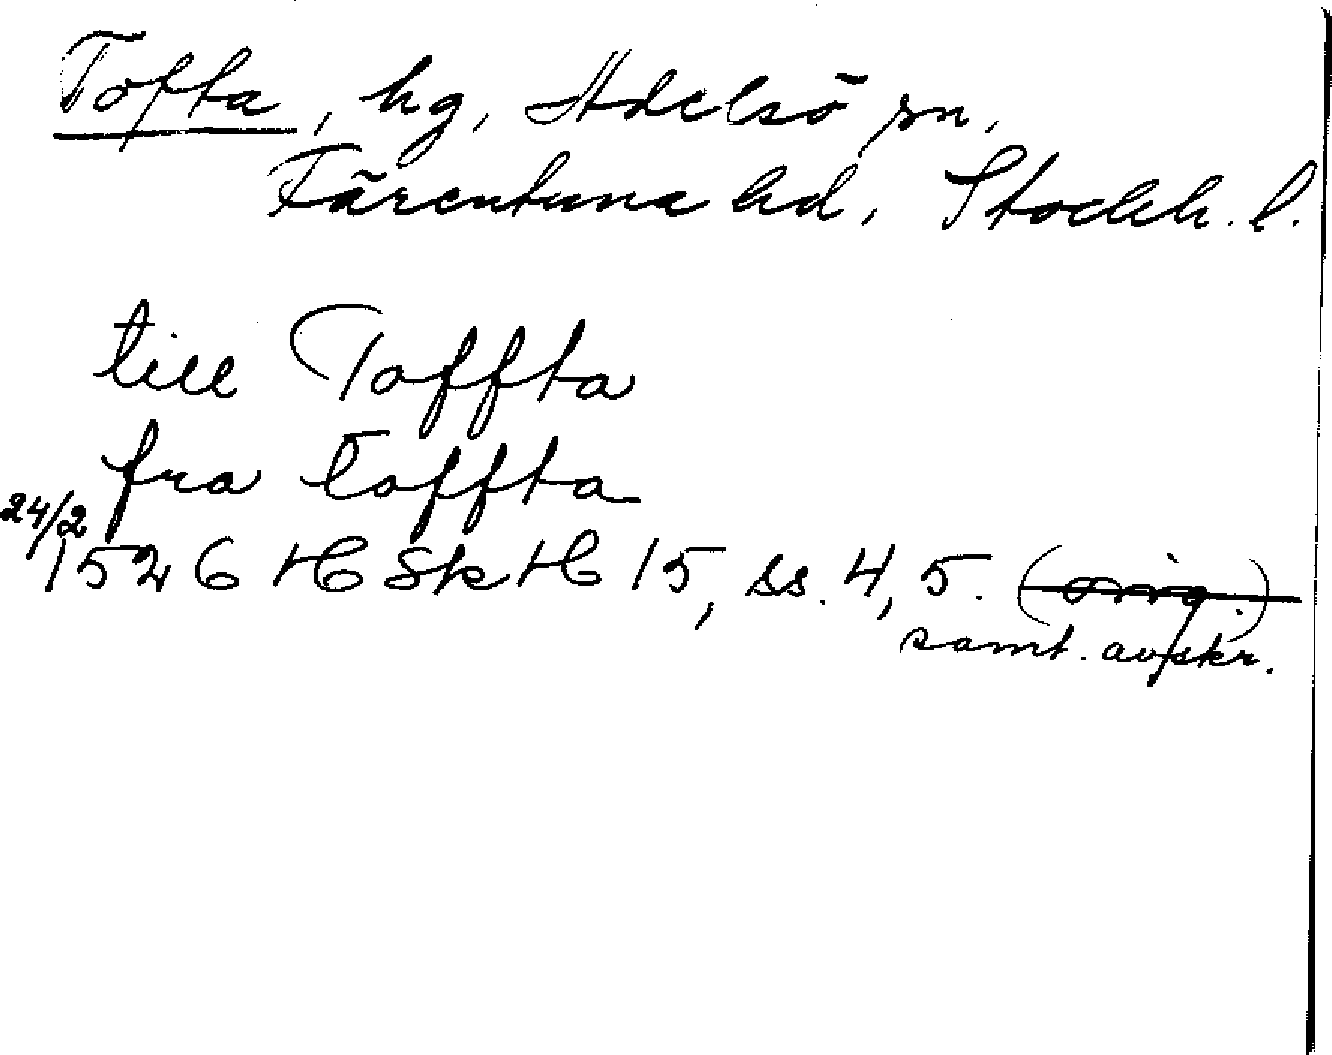 Tofta, hg, Adelsö sn,
Färentuna hd, Stockh. l.
till Toffta
fra toffta
24/2 1526 HSkH 15, ss. 4, 5. (orig.)
samt. avskr.